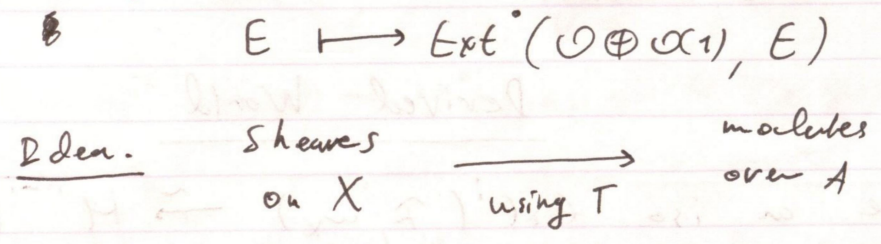 E ⟼ Ext^•(O ⊕ O(1), E)
Idea. Sheaves on X ⟶ using T modules over A